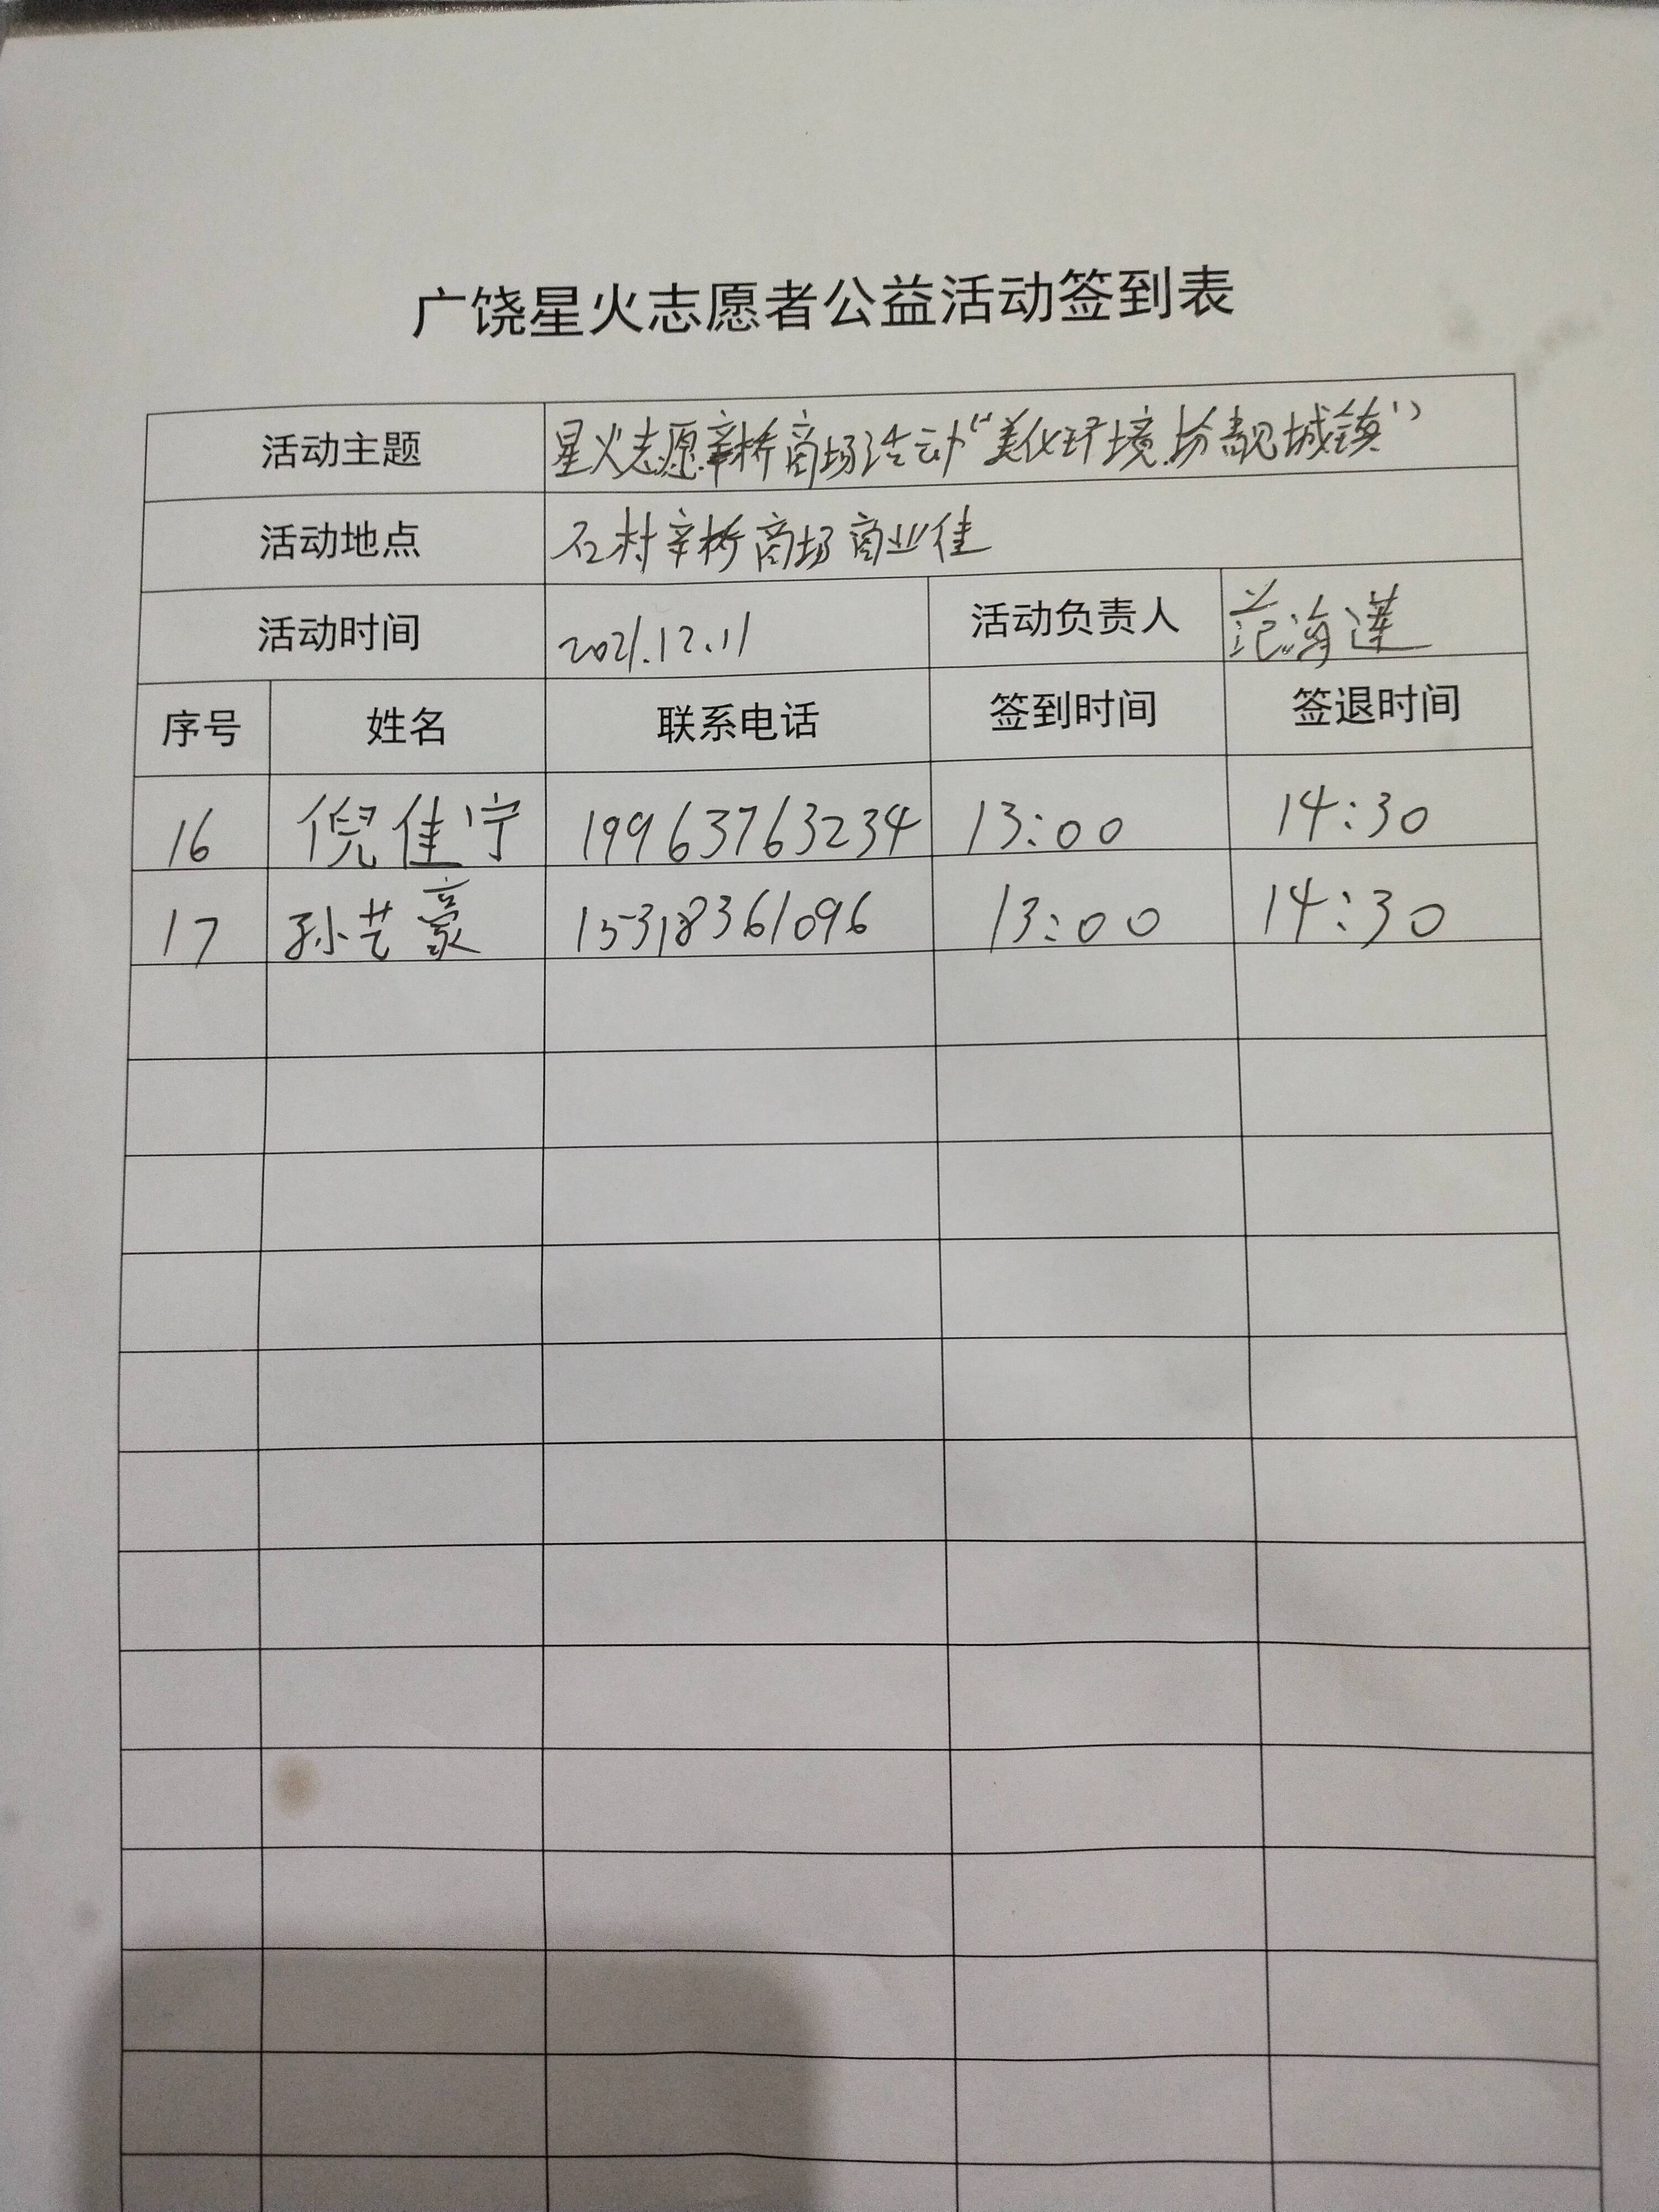 广饶星火志愿者公益活动签到表
活动主题 星火志愿辛桥商场活动“美化环境.扮靓城镇”
活动地点 石村辛桥商场商业佳
活动时间 2021.12.11 活动负责人 范海莲
序号 姓名 联系电话 签到时间 签退时间
16 倪佳宁 19963763234 13:00 14:30
17 孙艺豪 15318361096 13:00 14:30